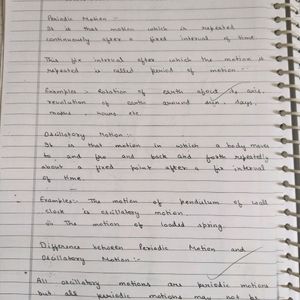 Periodic Motion :-
It is that motion which is repeated
continuously after a fixed interval of time.
This fix interval after which the motion is
repeated is called period of motion.
Examples :- Rotation of earth about its axis,
revolution of earth around sun, days,
months, hours etc.
Oscillatory Motion :-
It is that motion in which a body moves
to and fro and back and forth repeatedly
about a fixed point after a fix interval
of time.
Examples:- The motion of pendulum of wall
clock is oscillatory motion.
ii) The motion of loaded spring.
Difference between Periodic Motion and
Oscillatory Motion :-
All oscillatory motions are periodic motions
but all periodic motions may not be